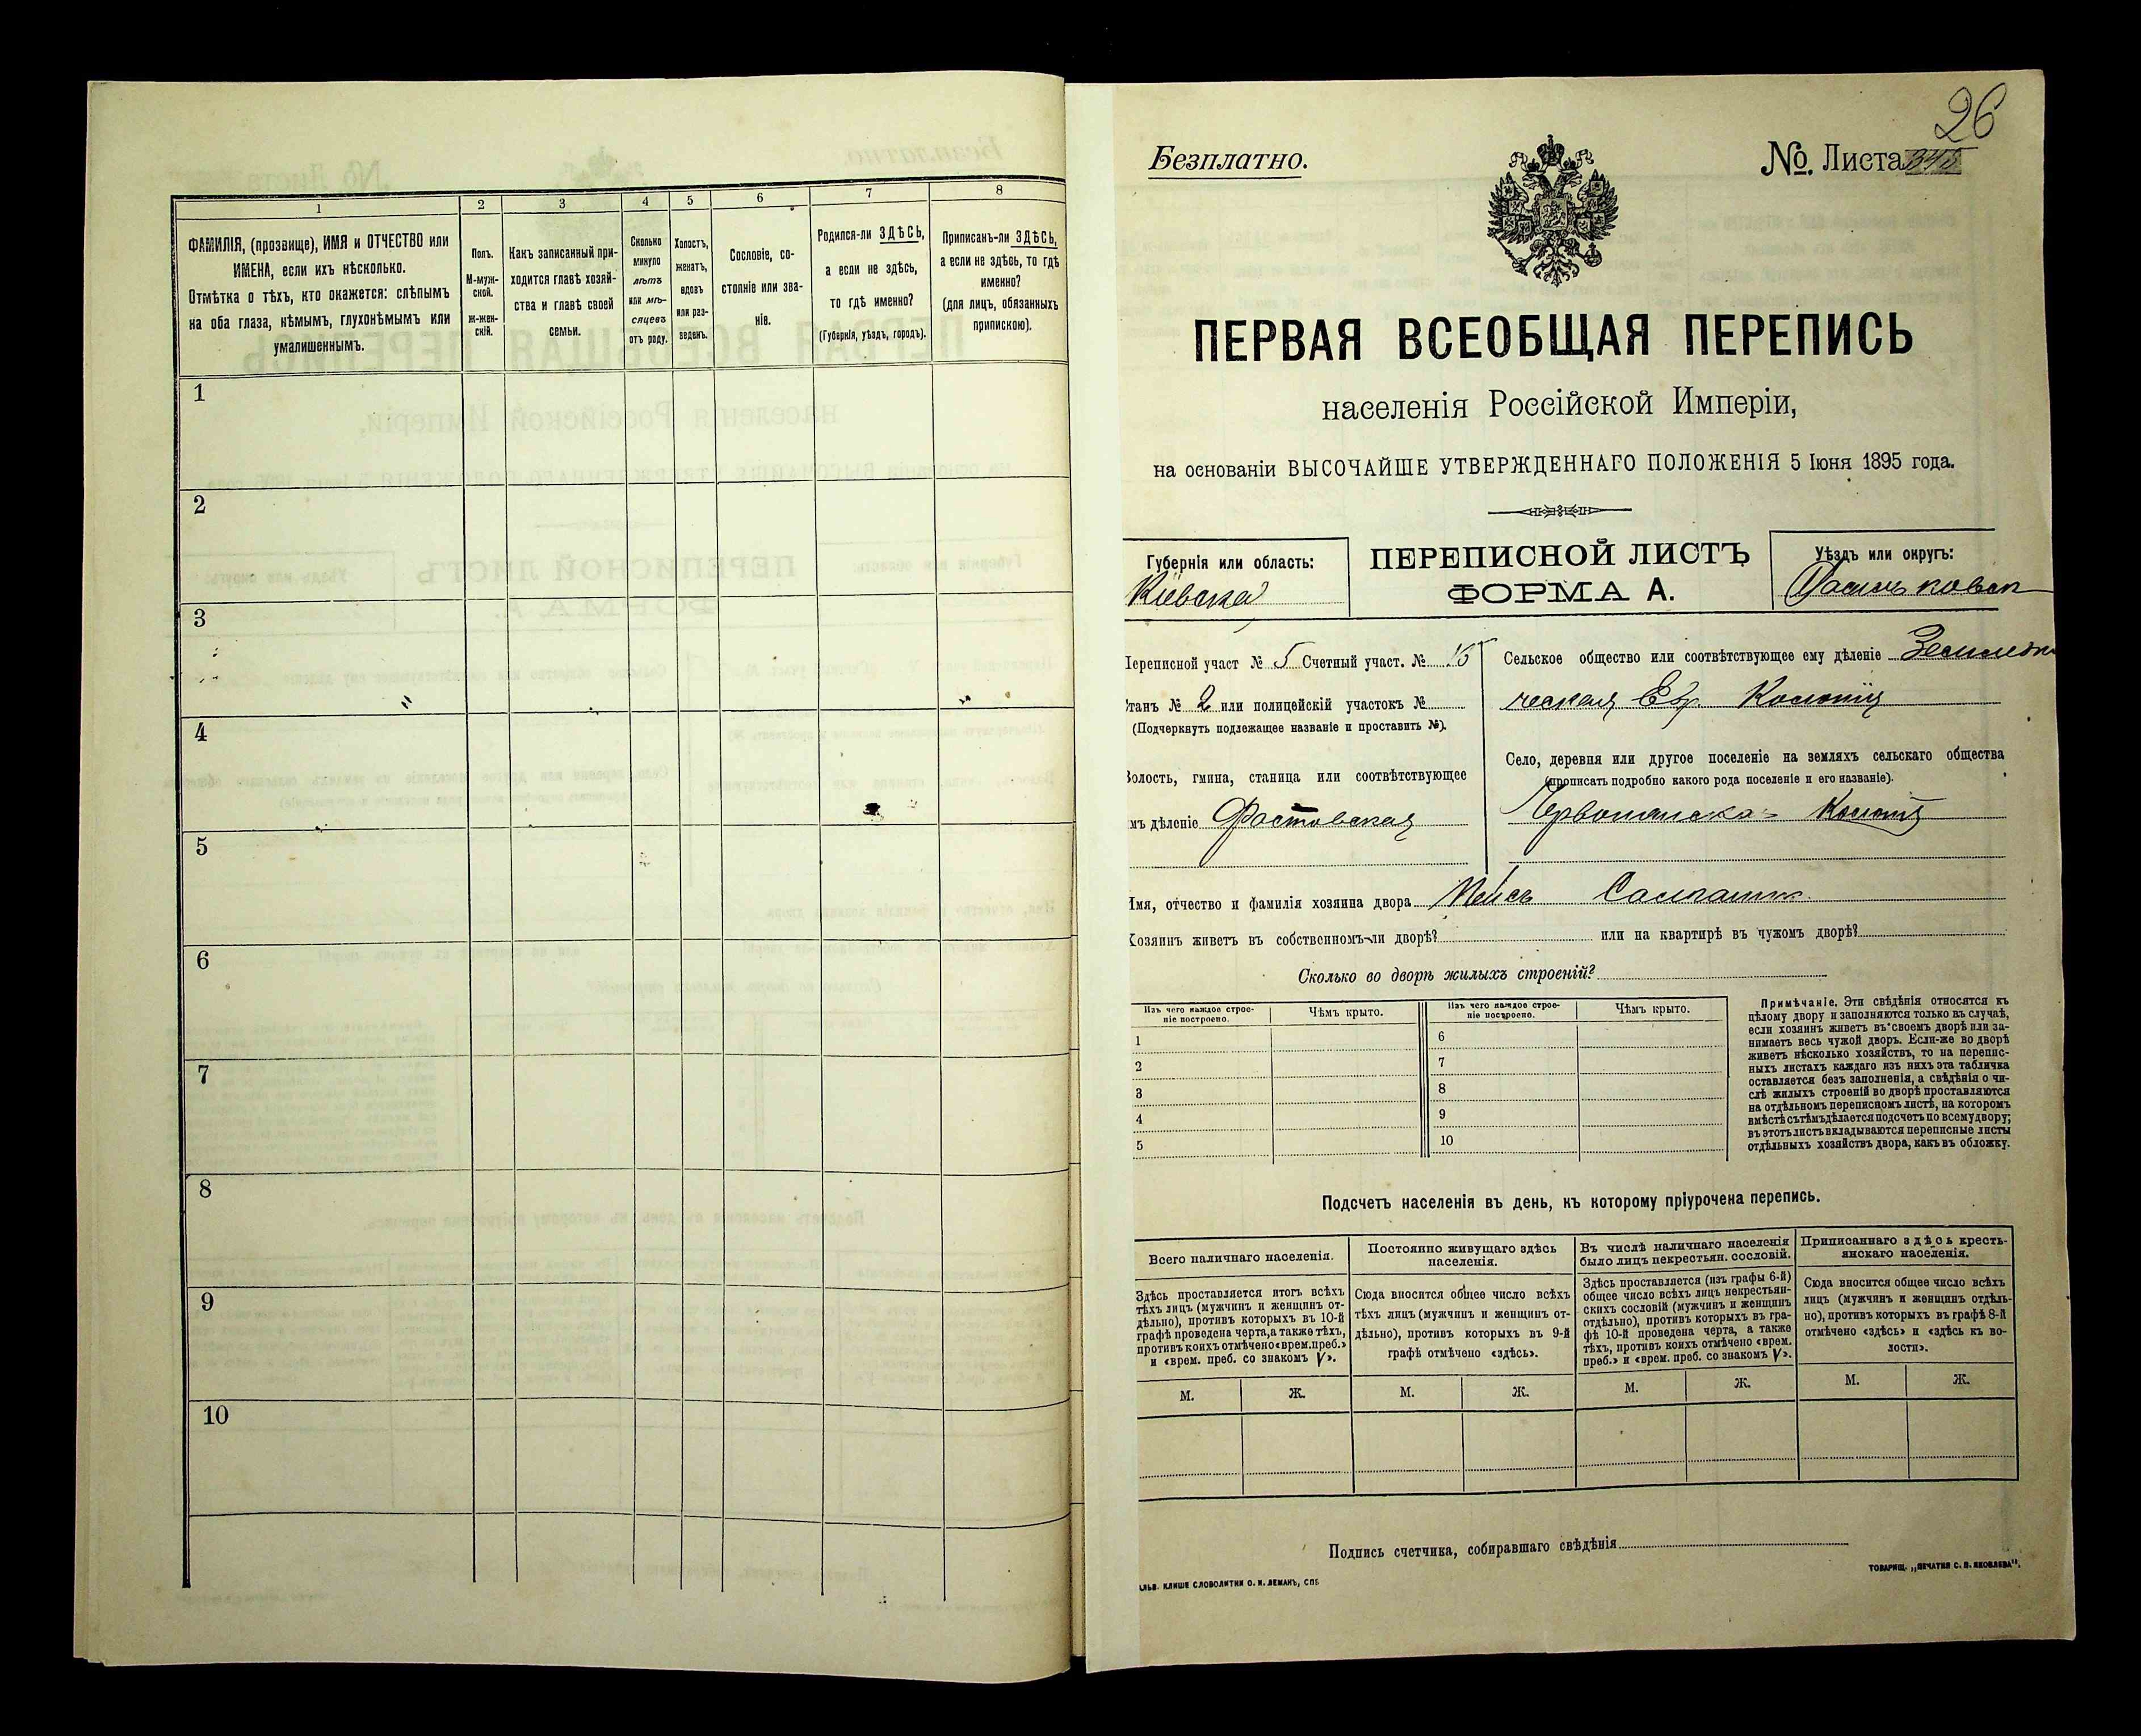 1
2
3
4
5
6
7
8
ФАМИЛІЯ, (прозвище), ИМЯ и ОТЧЕСТВО или
ИМЕНА, если ихъ нѣсколько.
Отмѣтка о тѣхъ, кто окажется: слѣпымъ
на оба глаза, нѣмымъ, глухонѣмымъ или
умалишеннымъ.
Полъ.
М-муж-
ской.
ж-жен-
скій.
Какъ записанный при-
ходится главѣ хозяй-
ства и главѣ своей
семьи.
Сколько
минуло
лѣтъ
или мѣ-
сяцевъ
отъ роду.
Холостъ,
женатъ,
вдовъ
или раз-
веденъ.
Сословіе, со-
стояніе или зва-
ніе.
Родился-ли ЗДѢСЬ,
а если не здѣсь,
то гдѣ именно?
(Губернія, уѣздъ, городъ).
Приписанъ-ли ЗДѢСЬ,
а если не здѣсь, то гдѣ
именно?
(для лицъ, обязанныхъ
припискою).
1
2
3
4
5
6
7
8
9
10
26
Безплатно.
№. Листа
ПЕРВАЯ ВСЕОБЩАЯ ПЕРЕПИСЬ
населенія Россійской Имперіи,
на основаніи ВЫСОЧАЙШЕ УТВЕРЖДЕННАГО ПОЛОЖЕНІЯ 5 Іюня 1895 года.
Губернія или область:
Кіевская
ПЕРЕПИСНОЙ ЛИСТЪ
ФОРМА А.
Уѣздъ или округъ:
Васильковск
Переписной участ № 5 Счетный участ. №
Станъ № 2 или полицейскій участокъ №
(Подчеркнуть подлежащее названіе и проставить №).
Волость, гмина, станица или соотвѣтствующее
имъ дѣленіе Фастовская
Сельское общество или соотвѣтствующее ему дѣленіе Земледѣл
ческая Евр. Колонія
Село, деревня или другое поселеніе на земляхъ сельскаго общества
(прописать подробно какого рода поселеніе и его названіе).
Колонія
Имя, отчество и фамилія хозяина двора
Хозяинъ живетъ въ собственномъ-ли дворѣ? или на квартирѣ въ чужомъ дворѣ?
Сколько во дворѣ жилыхъ строеній?
Изъ чего каждое строе-
ніе построено.
Чѣмъ крыто.
Изъ чего каждое строе-
ніе построено.
Чѣмъ крыто.
1
2
3
4
5
6
7
8
9
10
Примѣчаніе. Эти свѣдѣнія относятся къ
цѣлому двору и заполняются только въ случаѣ,
если хозяинъ живетъ въ своемъ дворѣ или за-
нимаетъ весь чужой дворъ. Если-же во дворѣ
живетъ нѣсколько хозяйствъ, то на перепис-
ныхъ листахъ каждаго изъ нихъ эта табличка
оставляется безъ заполненія, а свѣдѣнія о чи-
слѣ жилыхъ строеній во дворѣ проставляются
на отдѣльномъ переписномъ листѣ, на которомъ
вмѣстѣ съ тѣмъ дѣлается подсчетъ по всему двору;
въ этотъ листъ вкладываются переписные листы
отдѣльныхъ хозяйствъ двора, какъ въ обложку.
Подсчетъ населенія въ день, къ которому пріурочена перепись.
Всего наличнаго населенія.
Здѣсь проставляется итогъ всѣхъ
тѣхъ лицъ (мужчинъ и женщинъ от-
дѣльно), противъ которыхъ въ 10-й
графѣ проведена черта, а также тѣхъ,
противъ коихъ отмѣчено «врем. преб.»
и «врем. преб. со знакомъ V».
Постоянно живущаго здѣсь
населенія.
Сюда вносится общее число всѣхъ
тѣхъ лицъ (мужчинъ и женщинъ от-
дѣльно), противъ которыхъ въ 9-й
графѣ отмѣчено «здѣсь».
Въ числѣ наличнаго населенія
было лицъ некрестьян. сословій.
Здѣсь проставляется (изъ графы 6-й)
общее число всѣхъ лицъ некрестьян-
скихъ сословій (мужчинъ и женщинъ
отдѣльно), противъ которыхъ въ гра-
фѣ 10-й проведена черта, а также
тѣхъ, противъ коихъ отмѣчено «врем.
преб.» и «врем. преб. со знакомъ V».
Приписаннаго здѣсь кресть-
янскаго населенія.
Сюда вносится общее число всѣхъ
лицъ (мужчинъ и женщинъ отдѣль-
но), противъ которыхъ въ графѣ 8-й
отмѣчено «здѣсь» и «здѣсь къ во-
лости».
М. Ж. М. Ж. М. Ж. М. Ж.
Подпись счетчика, собиравшаго свѣдѣнія
ТОВАРИЩ. „ПЕЧАТНЯ С. П. ЯКОВЛЕВА“.
КЛИШЕ СЛОВОЛИТНИ О. И. ЛЕМАНЪ, СПБ